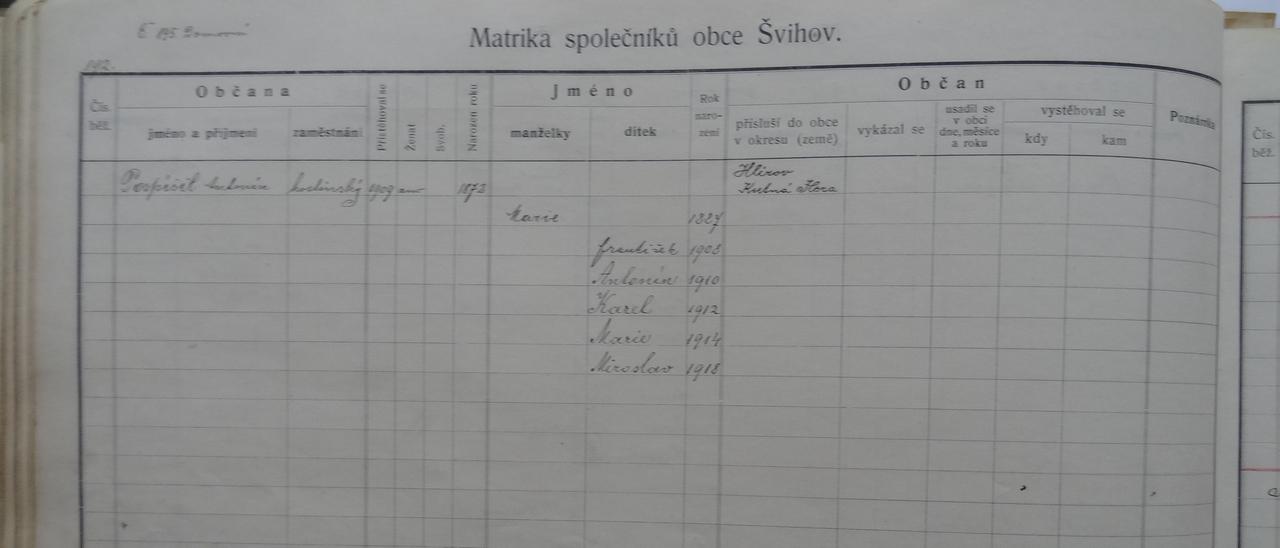 Č 195 Domovní
Matrika společníků obce Švihov.
192.
Čís. běž.
Občana
jméno a příjmení
zaměstnání
Přistěhoval se
Ženat
Svob.
Narozen roku
Jméno
manželky
dítek
Rok naro- zení
Občan
přísluší do obce
v okresu (země)
vykázal se
usadil se
v obci
dne, měsíce
a roku
vystěhoval se
kdy
kam
Poznámka
Čís.
běž.
Pospíšil Antonín hodinský 1909 ano 1873
Kutná Hora
Marie 1887
František 1908
Antonín 1910
Karel 1912
Marie 1914
Miroslav 1918